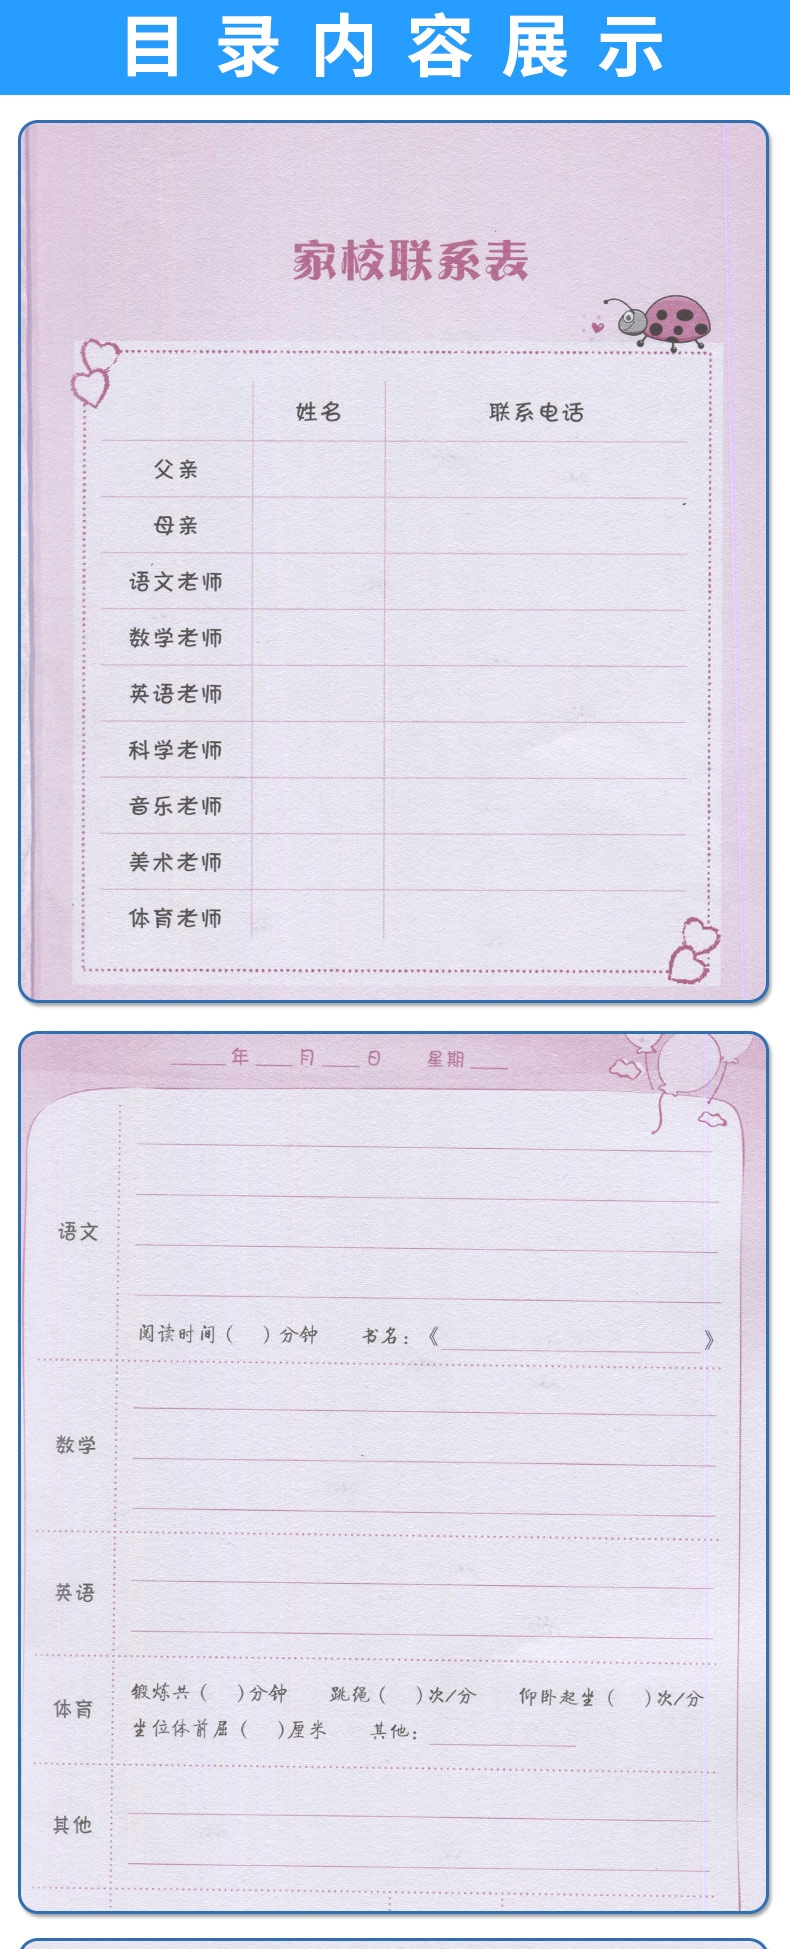 目录内容展示
家校联系表
姓名 联系电话
父亲
母亲
语文老师
数学老师
英语老师
科学老师
音乐老师
美术老师
体育老师
年 月 日 星期
语文
阅读时间( )分钟 书名:《 》
数学
英语
体育
锻炼共( )分钟 跳绳( )次/分 仰卧起坐( )次/分
坐位体前屈( )厘米 其他:
其他